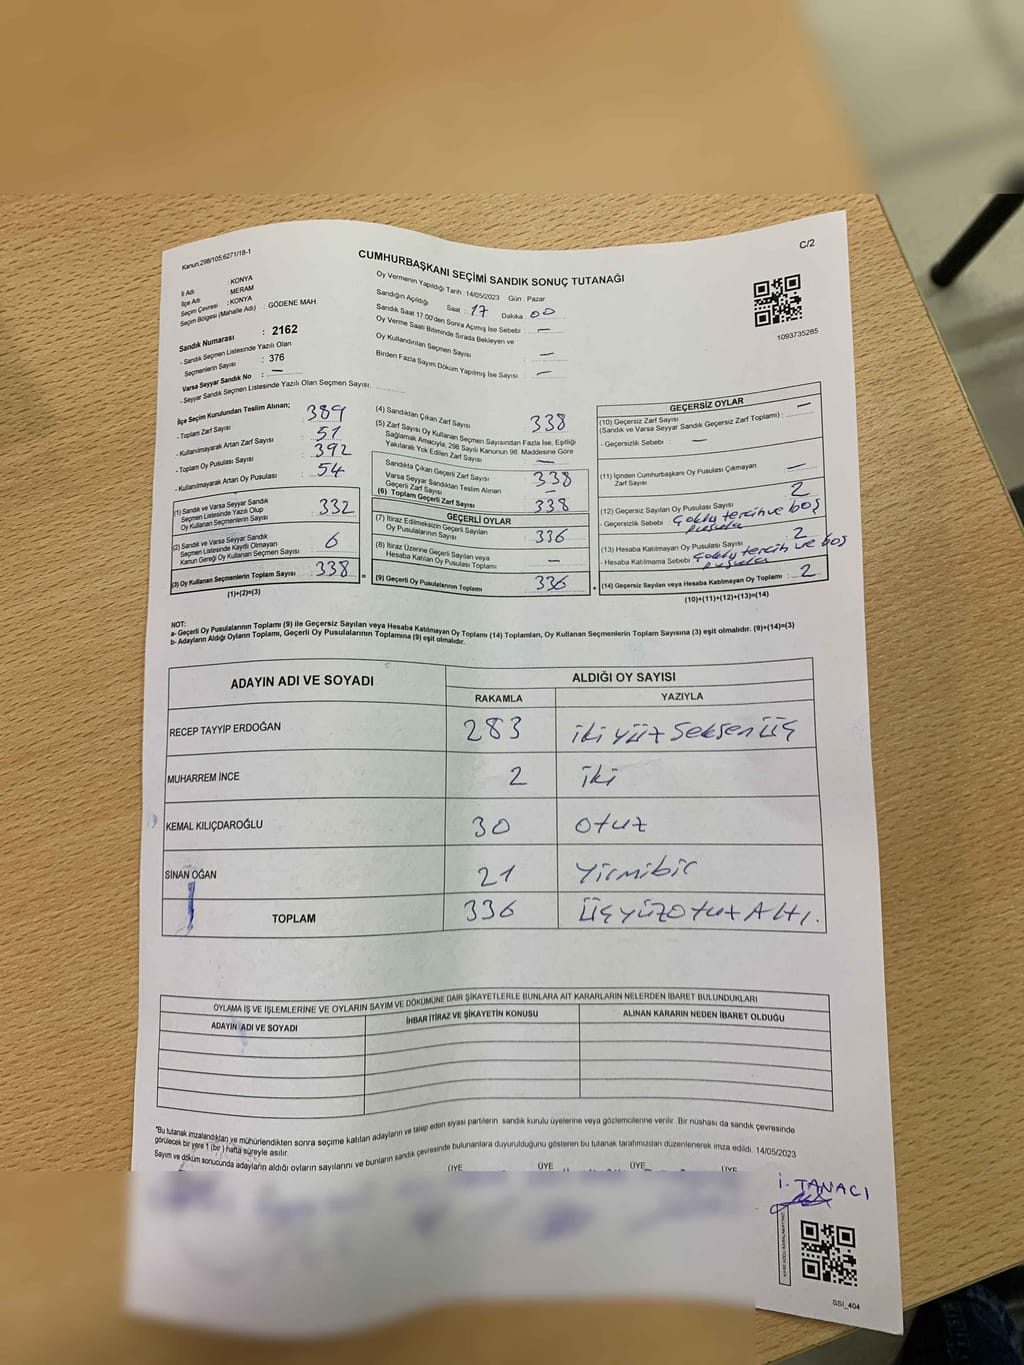 Kanun:298/105;6271/18-1
C/2
CUMHURBAŞKANI SEÇİMİ SANDIK SONUÇ TUTANAĞI
İl Adı : KONYA
İlçe Adı : MERAM
Seçim Çevresi : KONYA
Seçim Bölgesi (Mahalle Adı) : GÖDENE MAH.
Oy Vermenin Yapıldığı Tarih : 14/05/2023 Gün : Pazar
Sandığın Açıldığı Saat : 17 Dakika 00
Sandık Saat 17.00'den Sonra Açılmış İse Sebebi : —
Oy Verme Saati Bitiminde Sırada Bekleyen ve
Oy Kullandırılan Seçmen Sayısı : —
Birden Fazla Sayım Döküm Yapılmış İse Sayısı : —
1093735285
Sandık Numarası : 2162
- Sandık Seçmen Listesinde Yazılı Olan
Seçmenlerin Sayısı : 376
Varsa Seyyar Sandık No : —
- Seyyar Sandık Seçmen Listesinde Yazılı Olan Seçmen Sayısı:
İlçe Seçim Kurulundan Teslim Alınan;
- Toplam Zarf Sayısı : 389
- Kullanılmayarak Artan Zarf Sayısı : 51
- Toplam Oy Pusulası Sayısı : 392
- Kullanılmayarak Artan Oy Pusulası : 54
(1) Sandık ve Varsa Seyyar Sandık
Seçmen Listesinde Yazılı Olup
Oy Kullanan Seçmenlerin Sayısı : 332
(2) Sandık ve Varsa Seyyar Sandık
Seçmen Listesinde Kayıtlı Olmayan
Kanun Gereği Oy Kullanan Seçmen Sayısı : 6
(3) Oy Kullanan Seçmenlerin Toplam Sayısı : 338
(1)+(2)=(3)
(4) Sandıktan Çıkan Zarf Sayısı : 338
(5) Zarf Sayısı Oy Kullanan Seçmen Sayısından Fazla İse, Eşitliği
Sağlamak Amacıyla; 298 Sayılı Kanunun 98. Maddesine Göre
Yakılarak Yok Edilen Zarf Sayısı : —
Sandıkta Çıkan Geçerli Zarf Sayısı : 338
Varsa Seyyar Sandıktan Teslim Alınan
Geçerli Zarf Sayısı : —
(6) Toplam Geçerli Zarf Sayısı : 338
GEÇERLİ OYLAR
(7) İtiraz Edilmeksizin Geçerli Sayılan
Oy Pusulalarının Sayısı : 336
(8) İtiraz Üzerine Geçerli Sayılan veya
Hesaba Katılan Oy Pusulası Toplamı : —
= (9) Geçerli Oy Pusulalarının Toplamı : 336
GEÇERSİZ OYLAR
(10) Geçersiz Zarf Sayısı
(Sandık ve Varsa Seyyar Sandık Geçersiz Zarf Toplamı) : —
- Geçersizlik Sebebi : —
(11) İçinden Cumhurbaşkanı Oy Pusulası Çıkmayan
Zarf Sayısı : —
(12) Geçersiz Sayılan Oy Pusulası Sayısı : 2
- Geçersizlik Sebebi : Çoklu tercih ve boş
pusula
(13) Hesaba Katılmayan Oy Pusulası Sayısı : 2
- Hesaba Katılmama Sebebi : Çoklu tercih ve boş
pusula
+ (14) Geçersiz Sayılan veya Hesaba Katılmayan Oy Toplamı : 2
(10)+(11)+(12)+(13)=(14)
NOT:
a- Geçerli Oy Pusulalarının Toplamı (9) ile Geçersiz Sayılan veya Hesaba Katılmayan Oy Toplamı (14) Toplamları, Oy Kullanan Seçmenlerin Toplam Sayısına (3) eşit olmalıdır. (9)+(14)=(3)
b- Adayların Aldığı Oyların Toplamı, Geçerli Oy Pusulalarının Toplamına (9) eşit olmalıdır.
ADAYIN ADI VE SOYADI
ALDIĞI OY SAYISI
RAKAMLA YAZIYLA
RECEP TAYYİP ERDOĞAN 283 iki yüz seksen üç
MUHARREM İNCE 2 iki
KEMAL KILIÇDAROĞLU 30 otuz
SİNAN OĞAN 21 Yirmibir
TOPLAM 336 Üçyüzotuz Altı.
OYLAMA İŞ VE İŞLEMLERİNE VE OYLARIN SAYIM VE DÖKÜMÜNE DAİR ŞİKAYETLERLE BUNLARA AİT KARARLARIN NELERDEN İBARET BULUNDUKLARI
ADAYIN ADI VE SOYADI İHBAR İTİRAZ VE ŞİKAYETİN KONUSU ALINAN KARARIN NEDEN İBARET OLDUĞU
"Bu tutanak imzalandıktan ve mühürlendikten sonra seçime katılan adayların ve talep eden siyasi partilerin sandık kurulu üyelerine veya gözlemcilerine verilir. Bir nüshası da sandık çevresinde
görülecek bir yere 1 (bir) hafta süreyle asılır.
Sayım ve döküm sonucunda adayların aldığı oyların sayılarını ve bunların sandık çevresinde bulunanlara duyurulduğunu gösteren bu tutanak tarafımızdan düzenlenerek imza edildi. 14/05/2023
ÜYE ÜYE ÜYE ÜYE
İ. TANACI
SSI_404